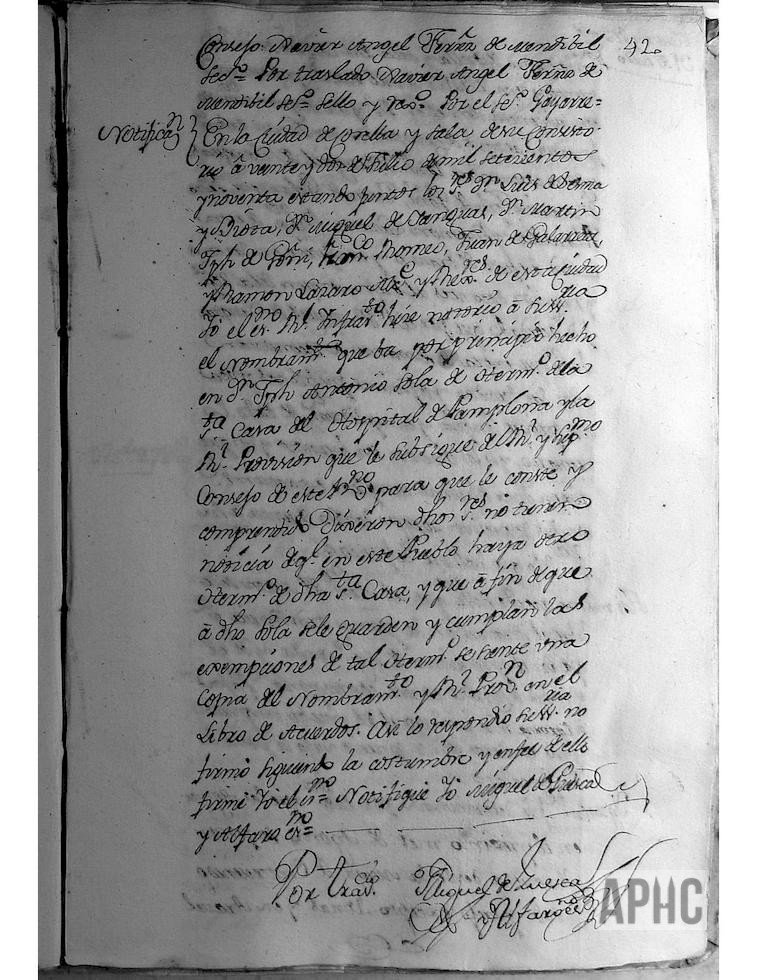 42.
Consejo. Navier Angel Fern̄z de Mendibil
Secº Por traslado Navier Angel Fern̄z de
Mendibil Seº Sello y Regº Por el Seº Gayarre=
Notificaⁿ
En la Ciudad de Corella y Sala de su Consisto
rio á veinte y dos de Julio de mil setecientos
y noventa estando juntos los Sres Dn Luis de Sesma
y Dn Miguel de Yanguas, Dn Martin
Jph de Goñi, Franco Romeo, Juan de Galarreta,
y Ramon Lazaro Alce y Rexres de esta Ciudad
Yo el esno Rl Infrasto hize notorio á su Sria
el Nombramto que ba por principio hecho
en Dn Jph Antonio Sola de Otermo de la
Sta Casa del Hospital de Pamplona y la
Rl Provision que le subsigue del Rl y Supmo
Consejo de este Rno para que le conste y
comprendida Dixeron dhos Sres no tienen
noticia de q.e en este Pueblo haya otro
Otermo de dha Sta Casa, y que á fin de que
á dho Sola se le guarden y cumplan las
exempciones de tal Otermo se siente una
Copia del Nombramto y Rl Provn en el
Libro de Acuerdos. Asi lo respondio su Sria no
firmó siguiendo la costumbre y en fee de ello
firmé Yo el esno Notifiqué Yo Miguel de Huesca
y Alfaro esno
Por tradº Miguel de Huesca
y Alfaro esno
APHC